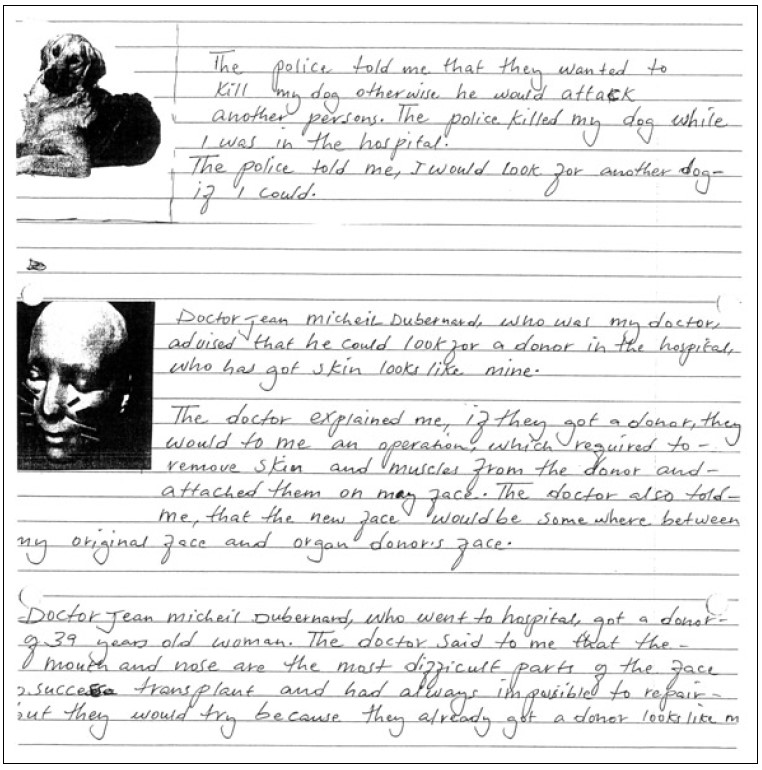 The police told me that they wanted to
kill my dog otherwise he would attack
another persons. The police killed my dog while
I was in the hospital.
The police told me, I would look for another dog-
if I could.
Doctor Jean micheil Dubernard, who was my doctor,
advised that he could look for a donor in the hospital,
who has got skin looks like mine.
The doctor explained me, if they got a donor, they
would to me an operation, which required to-
remove skin and muscles from the donor and-
attached them on my face. The doctor also told-
me, that the new face would be some where between
my original face and organ donor's face.
Doctor Jean micheil Dubernard, who went to hospital, got a donor-
of 39 years old woman. The doctor said to me that the-
mouth and nose are the most difficult parts of the face
success transplant and had always impossible to repair-
but they would try because they already got a donor looks like m